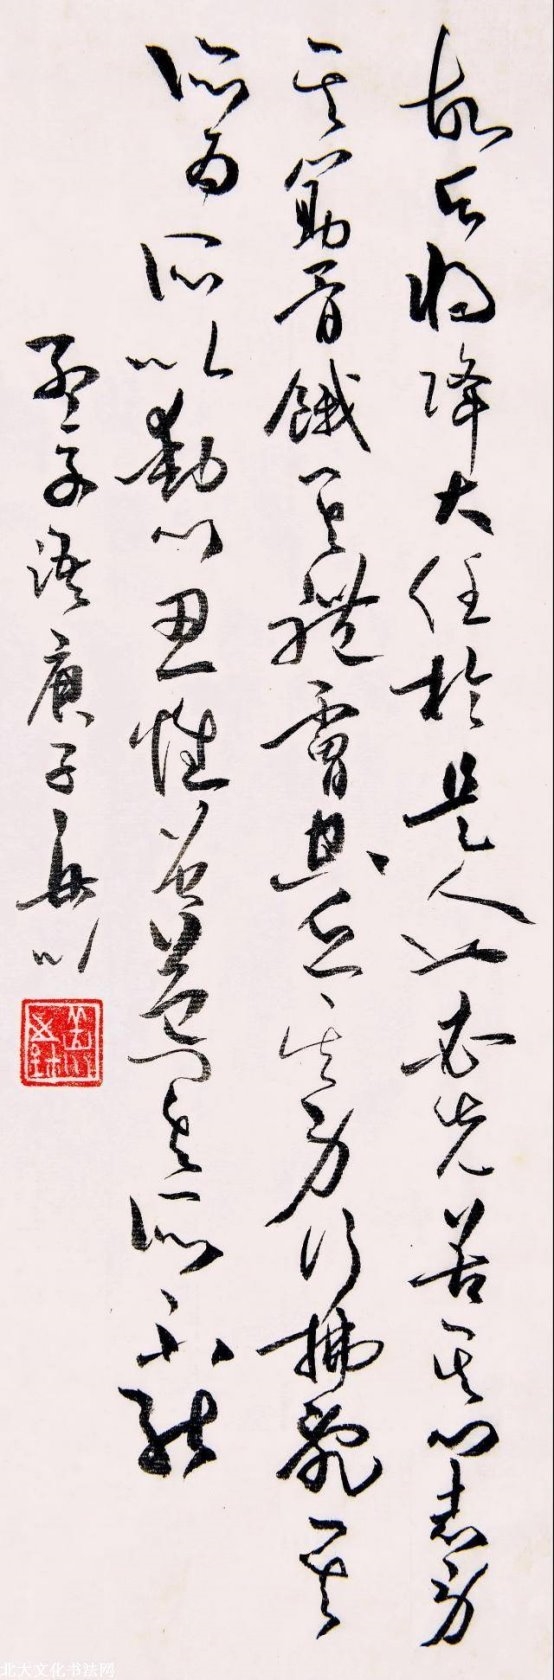 故天将降大任於是人也必先苦其心志劳
其筋骨餓其體膚空乏其身行拂亂其
所为所以動心忍性曾益其所不能
孟子语庚子
北大文化书法网